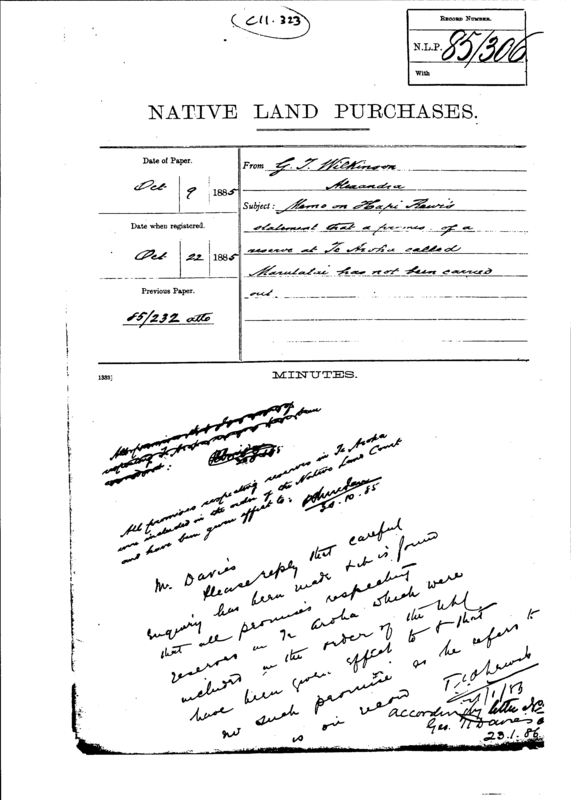 C11.323
RECORD NUMBER.
N.L.P. 85/306
With
NATIVE LAND PURCHASES.
Date of Paper.
Oct 9 1885
Date when registered.
Oct 22 1885
Previous Paper.
85/232 atto
From G. T. Wilkinson
Alexandra
Subject: Memo on Hapi Rewi's
statement that a promise of a
reserve at Te Aroha called
has not been carried
out.
1333]
MINUTES.
All promises respecting reserves in Te Aroha
were included in the order of the Native Land Court
and have been given effect to.
30.10.85
Mr. Davies
Please reply that careful
enquiry has been made & it is found
that all promises respecting
reserves in Te Aroha which were
included in the order of the
have been given effect to & that
no such promise as he refers to
is on record
/1/86
accordingly letter
Geo. H Davies
23.1.86